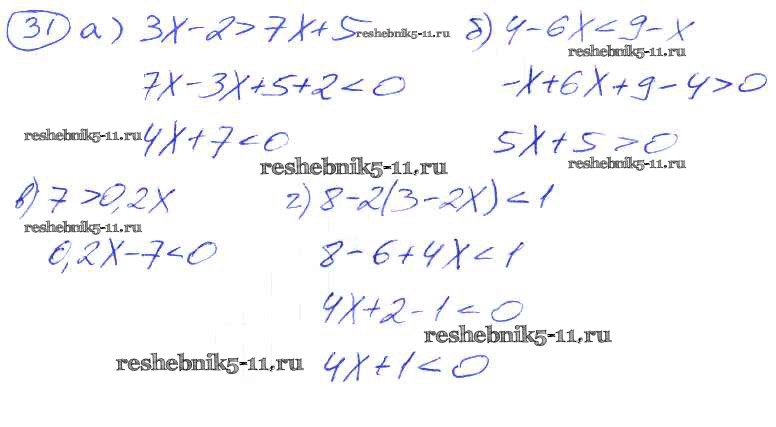 31 а) 3x-2>7x+5 reshebnik5-11.ru б) 4-6x<9-x
reshebnik5-11.ru
7x-3x+5+2<0 -x+6x+9-4>0
reshebnik5-11.ru 4x+7<0 5x+5>0
reshebnik5-11.ru reshebnik5-11.ru
в) 7>0,2x г) 8-2(3-2x)<1
reshebnik5-11.ru
0,2x-7<0 8-6+4x<1
4x+2-1<0
reshebnik5-11.ru
reshebnik5-11.ru 4x+1<0